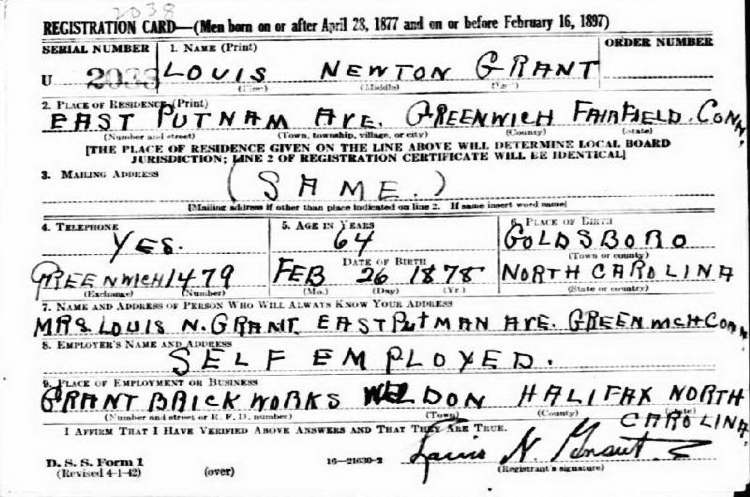 2038
REGISTRATION CARD—(Men born on or after April 28, 1877 and on or before February 16, 1897)
SERIAL NUMBER 1. NAME (Print) ORDER NUMBER
U 2038 LOUIS NEWTON GRANT
(First) (Middle) (Last)
2. PLACE OF RESIDENCE (Print)
EAST PUTNAM AVE. GREENWICH FAIRFIELD CONN
(Number and street) (Town, township, village, or city) (County) (State)
[THE PLACE OF RESIDENCE GIVEN ON THE LINE ABOVE WILL DETERMINE LOCAL BOARD
JURISDICTION; LINE 2 OF REGISTRATION CERTIFICATE WILL BE IDENTICAL]
3. MAILING ADDRESS
(SAME.)
[Mailing address if other than place indicated on line 2. If same insert word same]
4. TELEPHONE 5. AGE IN YEARS 6. PLACE OF BIRTH
YES. 64 GOLDSBORO
DATE OF BIRTH (Town or county)
GREENWICH 1479 FEB 26 1878 NORTH CAROLINA
(Exchange) (Number) (Mo.) (Day) (Yr.) (State or country)
7. NAME AND ADDRESS OF PERSON WHO WILL ALWAYS KNOW YOUR ADDRESS
MRS LOUIS N. GRANT EAST PUTMAN AVE. GREENWICH CONN
8. EMPLOYER'S NAME AND ADDRESS
SELF EMPLOYED.
9. PLACE OF EMPLOYMENT OR BUSINESS
GRANT BRICK WORKS WELDON HALIFAX NORTH
(Number and street or R. F. D. number) (Town) (County) (State)
CAROLINA
I AFFIRM THAT I HAVE VERIFIED ABOVE ANSWERS AND THAT THEY ARE TRUE.
Louis N. Grant
D. S. S. Form 1 16—21630-2
(Revised 4-1-42) (over) (Registrant's signature)